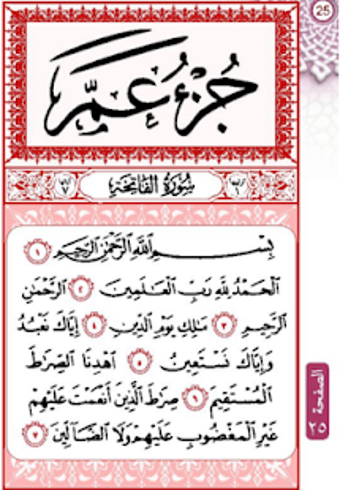 25
جُزْءُ عَمَّ
سُورَةُ الفَاتِحَةِ
بِسْمِ اللَّهِ الرَّحْمَٰنِ الرَّحِيمِ ١
الْحَمْدُ لِلَّهِ رَبِّ الْعَالَمِينَ ٢ الرَّحْمَٰنِ
الرَّحِيمِ ٣ مَالِكِ يَوْمِ الدِّينِ ٤ إِيَّاكَ نَعْبُدُ
وَإِيَّاكَ نَسْتَعِينُ ٥ اهْدِنَا الصِّرَاطَ
الْمُسْتَقِيمَ ٦ صِرَاطَ الَّذِينَ أَنْعَمْتَ عَلَيْهِمْ
غَيْرِ الْمَغْضُوبِ عَلَيْهِمْ وَلَا الضَّالِّينَ ٧
الصفحة ٢٥